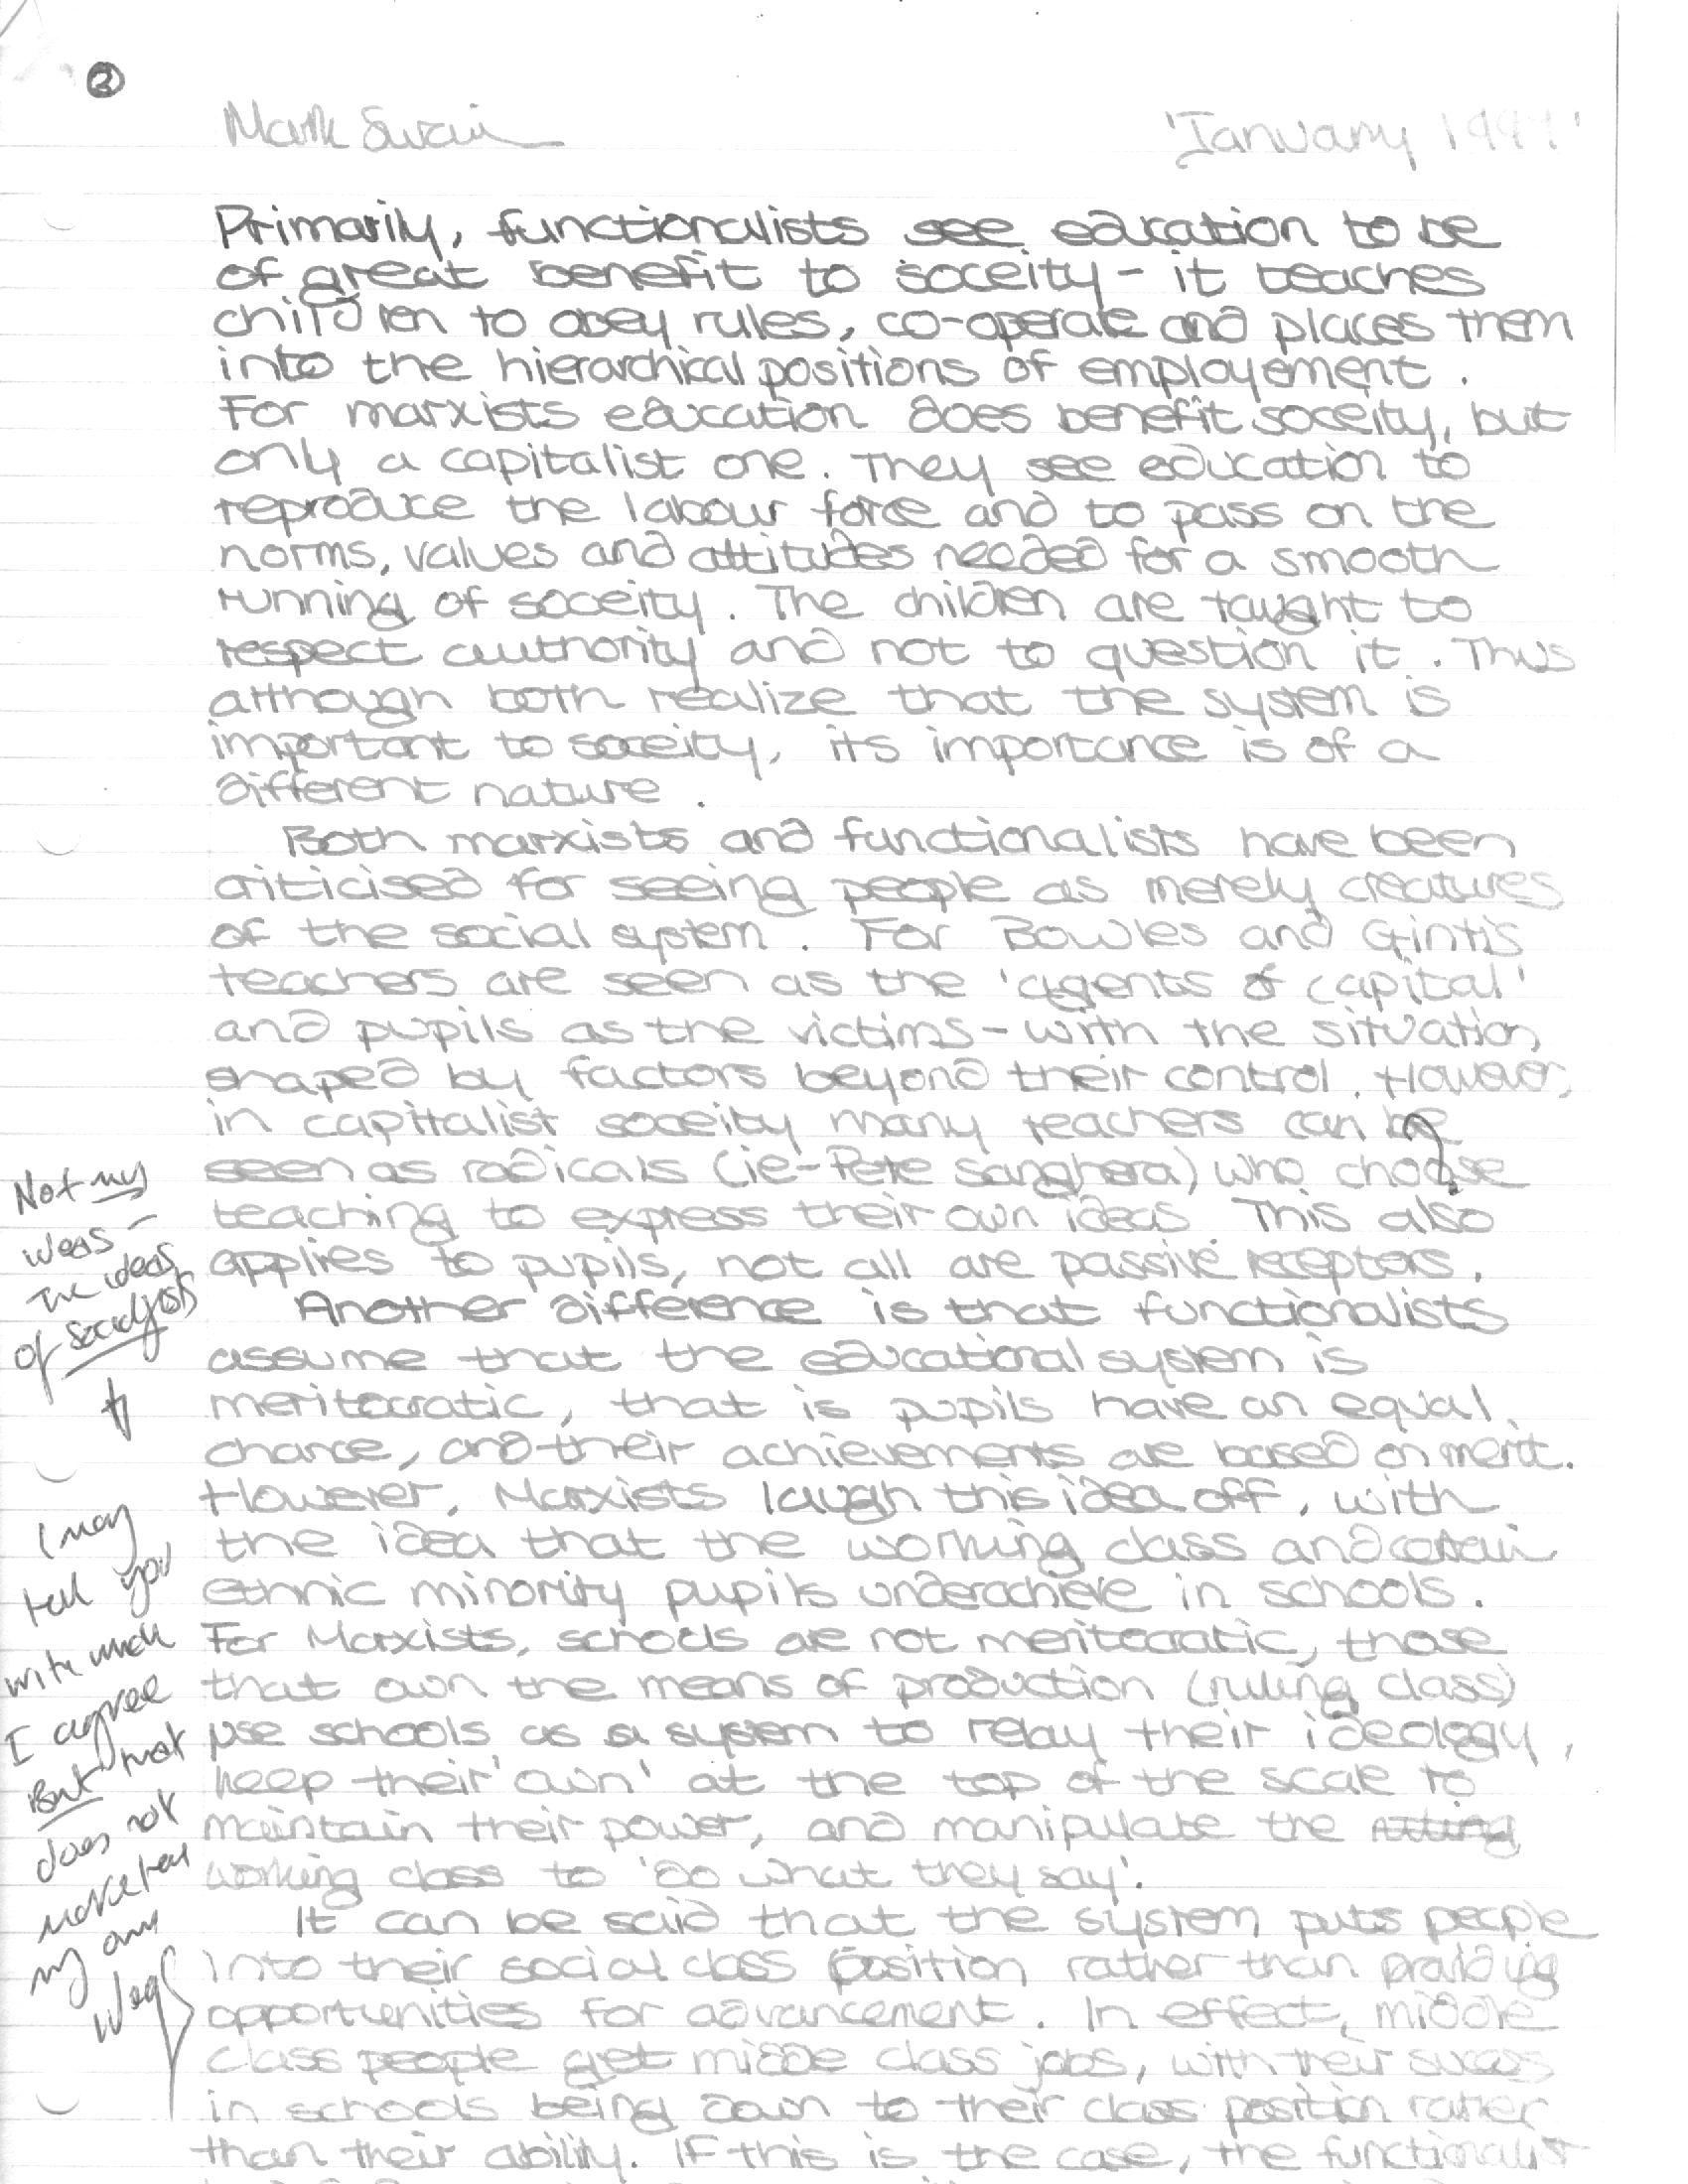 2
Mark Swain
'January 199
Primarily, functionalists see education to be
of great benefit to soceity - it teaches
children to obey rules, co-operate and places them
into the hierarchical positions of employement.
For marxists education does benefit soceity, but
only a capitalist one. They see education to
reproduce the labour force and to pass on the
norms, values and attitudes needed for a smooth
running of soceity. The children are taught to
respect authority and not to question it. Thus
although both realize that the system is
important to soceity, its importance is of a
different nature.
Both marxists and functionalists have been
criticised for seeing people as merely creatures
of the social system. For Bowles and Gintis
teachers are seen as the 'agents of capital'
and pupils as the victims - with the situation
shaped by factors beyond their control. However,
in capitalist soceity many teachers can be
seen as radicals (ie - Pete Sanghera) who choose
teaching to express their own ideas. This also
applies to pupils, not all are passive receptors.
Another difference is that functionalists
assume that the educational system is
meritocratic, that is pupils have an equal
chance, and their achievements are based on merit.
However, Marxists laugh this idea off, with
the idea that the working class and certain
ethnic minority pupils underachieve in schools.
For Marxists, schools are not meritocratic, those
that own the means of production (ruling class)
use schools as a system to relay their ideology,
keep their 'own' at the top of the scale to
maintain their power, and manipulate the
working class to 'do what they say'.
It can be said that the system puts people
into their social class position rather than providing
opportunities for advancement. In effect, middle
class people get middle class jobs, with their success
in schools being down to their class position rather
than their ability. If this is the case, the functionalist
Not my
ideas -
The ideas
of sociologists
I may
tell you
with which
I agree
But that
does not
make them
my own
ideas